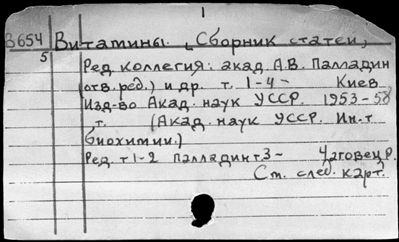 1
B654 Витамины. [Сборник статей,
5
Ред. коллегия: акад. А.В. Палладин
(отв. ред.) и др. т. 1-4- Киев
Изд-во Акад. наук УССР. 1953-58
т. (Акад. наук УССР. Ин-т
биохимии.)
Ред. т 1-2 Палладин т.3- Чаговец Р.
См. след. карт.